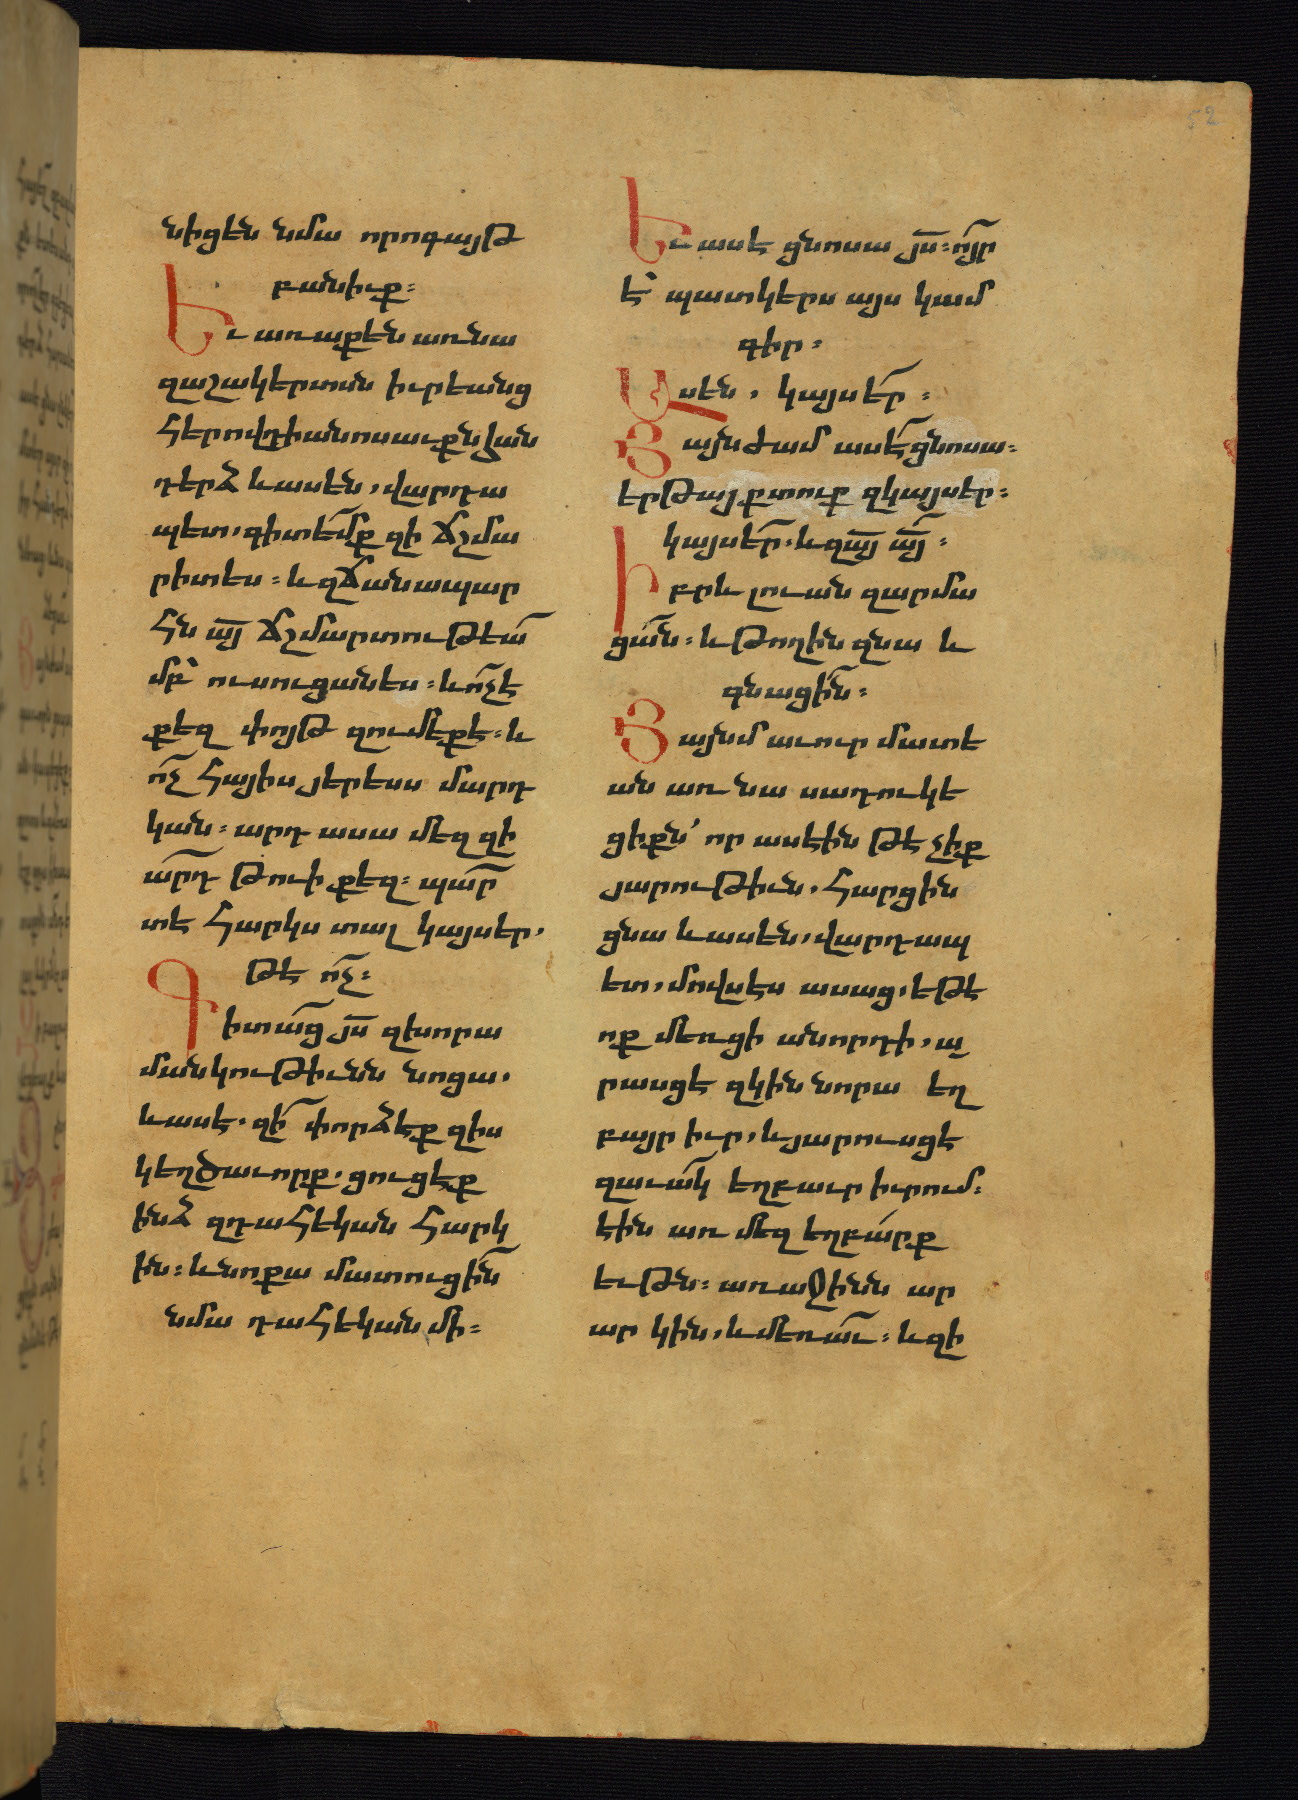 նիցեն նմա որոգայթ
բանիւք։
Եւ առաքեն առ նա
զաշակերտսն իւրեանց
հերովդիանոսաւքն հան
դերձ և ասեն, վարդա
պետ, գիտեմք զի ճշմա
րիտես։ և զճանապար
հն ա՟յ ճշմարտութեա՟
մբ ուսուցանես։ և ո՟չ է
քեզ փոյթ զումեքե։ և
ո՟չ հայիս յերեսս մարդ
կան։ արդ ասա մեզ զի
արդ թուի քեզ։ պար
տէ հարկս տալ կայսեր,
թէ ո՟չ։
Գիտաց յ՟ս զխորա
մանկութիւնն նոցա,
և ասէ. զի փորձէք զիս
կեղծաւորք. ցուցէք
ինձ զդահեկան հարկ
ին։ և նոքա մատուցին
նմա դահեկան մի։
Եւ ասէ ցնոսա յ՟ս։ ո՟յր
է պատկերս այս կամ
գիր։
Ասեն, կայսեր։
Յայնժամ ասէ ցնոսա։
երթայք տուք զկայսեր։
կայսեր. և զա՟յ ա՟յ։
Իբրև լուան զարմա
ցան։ և թողին զնա և
գնացին։
Յայնմ աւուր մատե
ան առ նա սադուկե
ցիքն՝ որ ասէին թէ չիք
յարութիւն, հարցին
ցնա և ասեն, վարդապ
ետ, մովսէս ասաց, եթէ
ոք մեռցի անորդի, ա
րասցէ զկին նորա եղ
բայր իւր, և յարուսցէ
զաւակ եղբաւր իւրում։
էին առ մեզ եղբարք
եւթն։ առաջինն ար
ար կին, և մեռաւ։ և զի
52